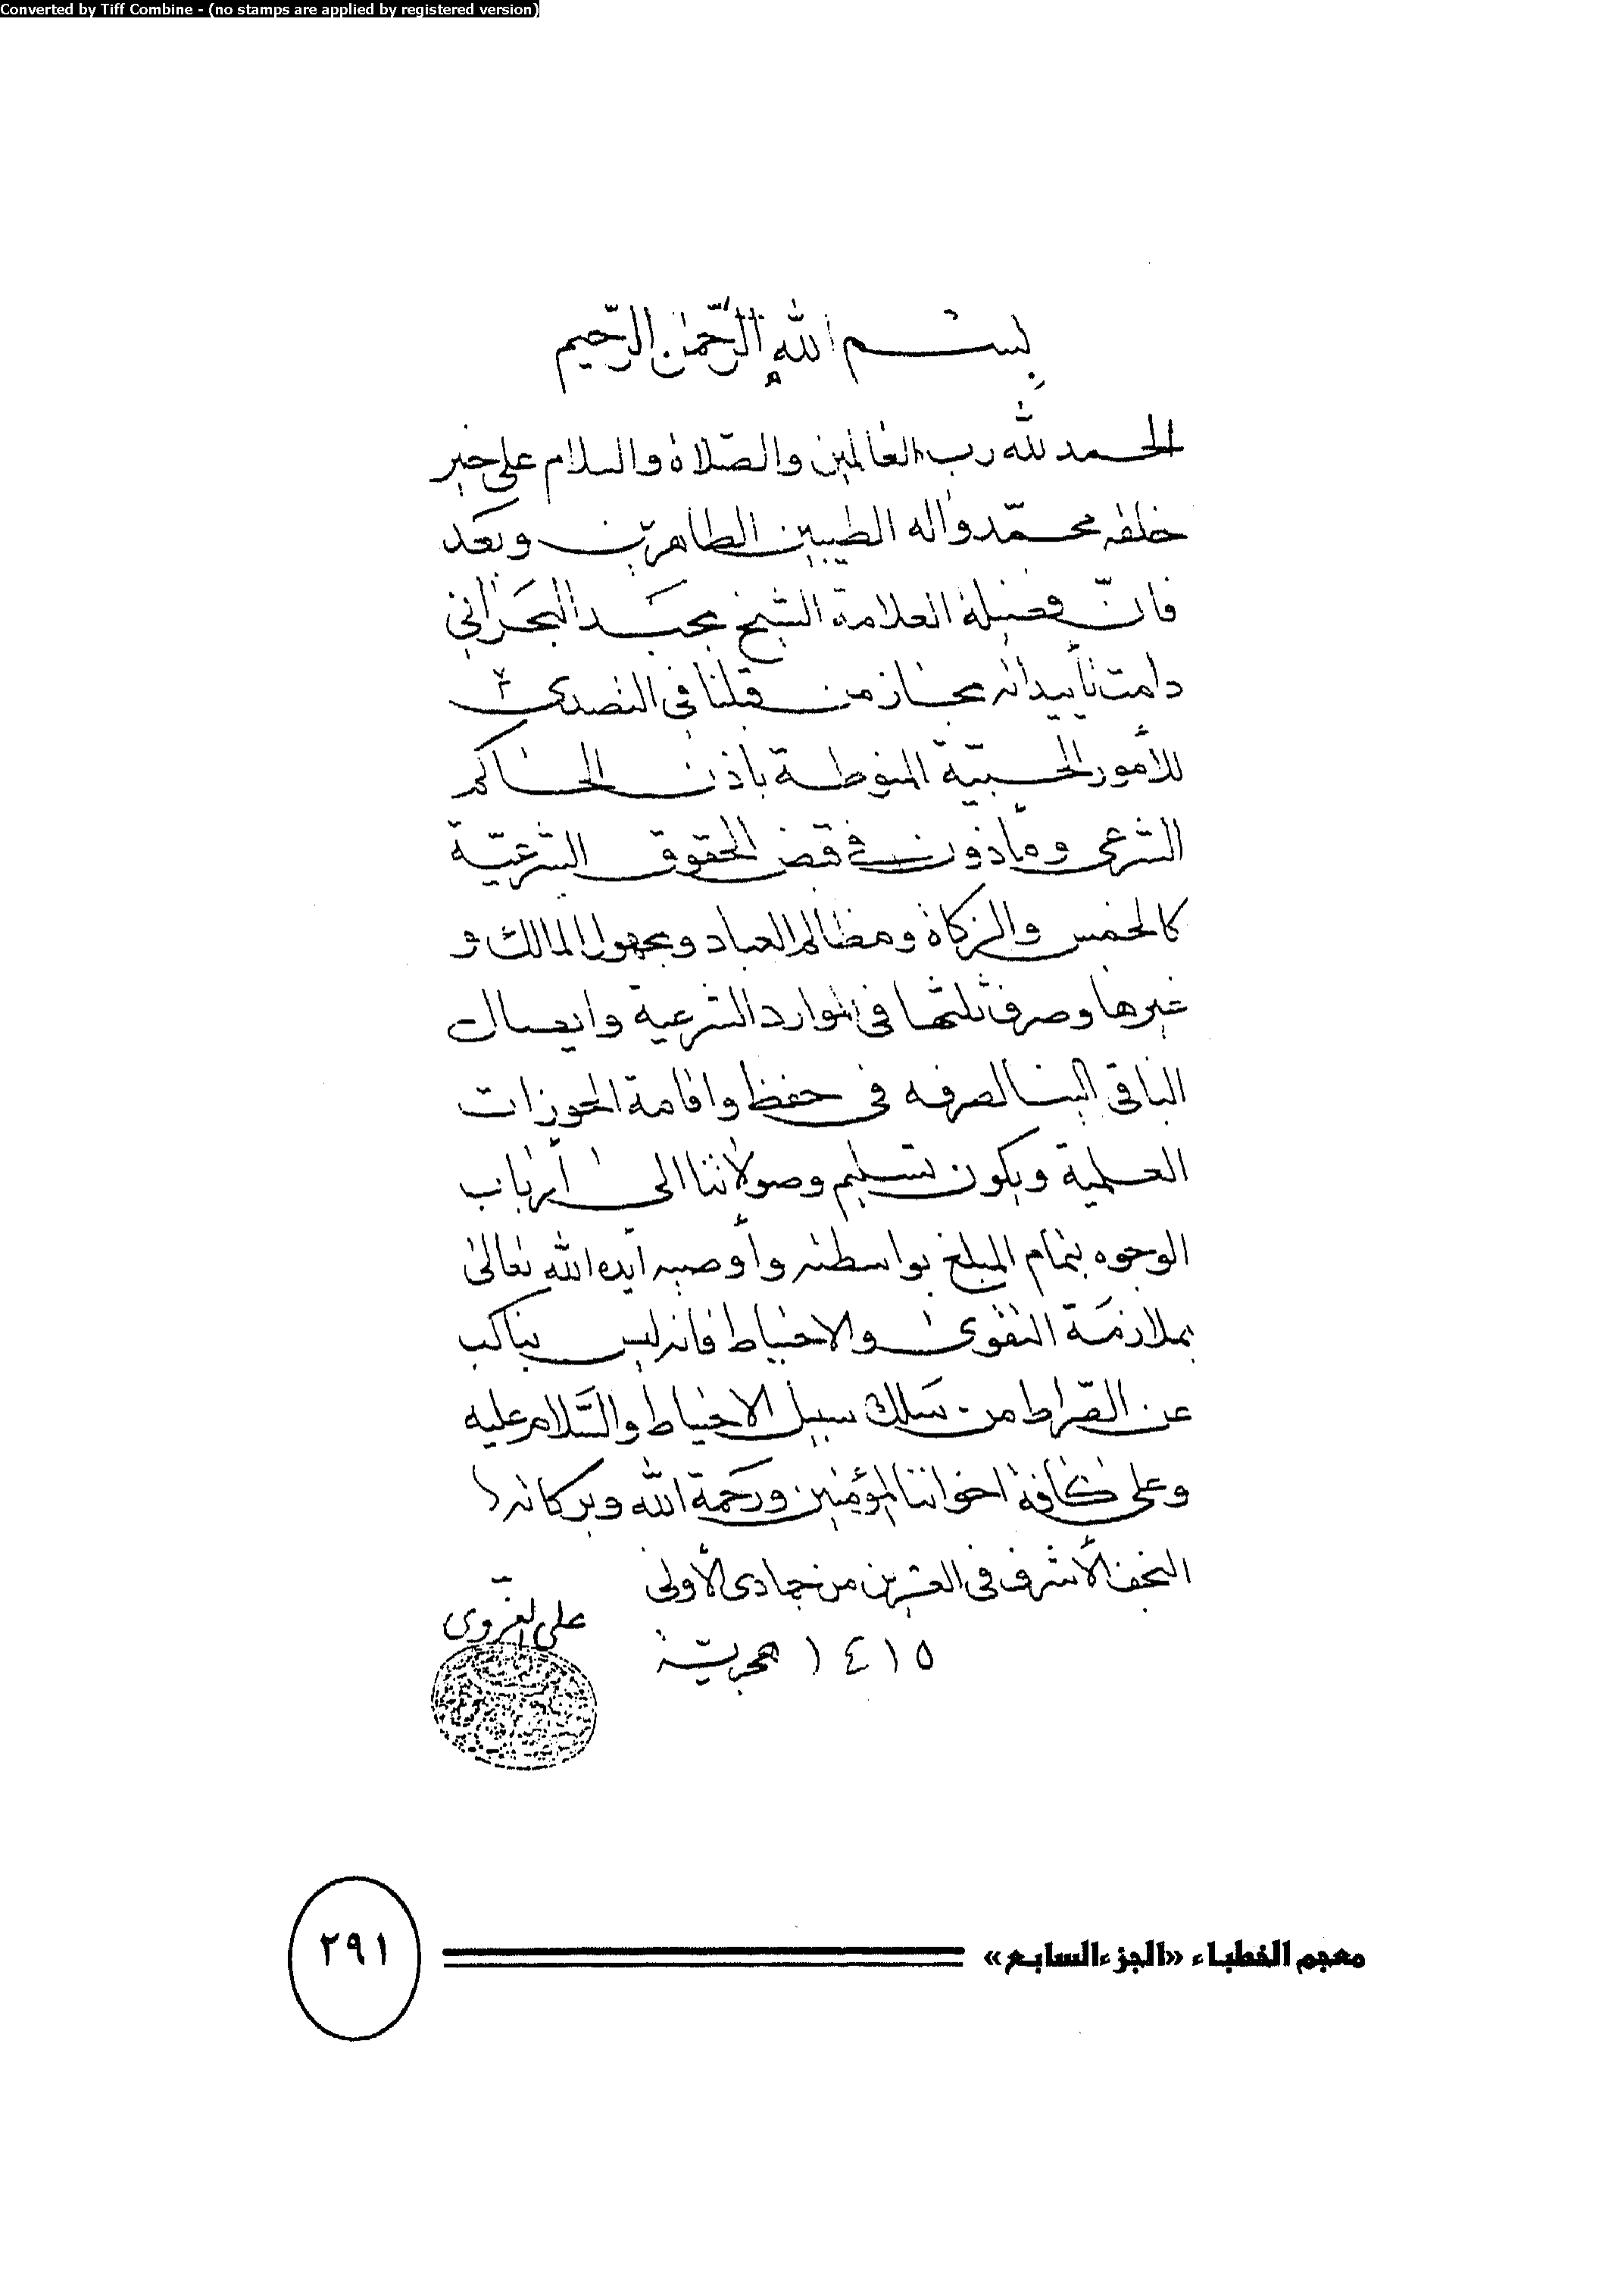 Converted by Tiff Combine - (no stamps are applied by registered version)
بسم الله الرحمن الرحيم
الحمد لله رب العالمين والصّلاة والسلام على خير
خلقه محمّد وآله الطيبين الطاهرين وبَعَد
فانّ فضيلة العلامة الشيخ البَحَراني
دامت تأييداته مجاز من قبلنا في التصدي
للأمور الحسبيّة المنوطة باذن الحاكم
الشرعي ومأذون في قبض الحقوق الشرعيّة
كالخمس والزكاة ومظالم العباد ومجهول المالك و
غيرها وصرف ثلثها في الموارد الشرعية وايصال
الباقي الينا لصرفه في حفظ واقامة الحوزات
العلمية ويكون تسليم وصولاتنا الى أرباب
الوجوه بتمام المبلغ بواسطته وأوصيه ايّده الله تعالى
بملازمَة التقوى والاحتياط فانه ليس بناكب
عن الصّراط من سَلك سبيل الاحتياط والسَّلام عليه
وعلى كافة اخواننا المؤمنين ورَحمة الله وبركاته
النجف الأشرف في العشرين من جمادى الأولى
١٤١٥ هجريّة
علي الغروي
معجم الخطباء «الجزء السابع»
٢٩١